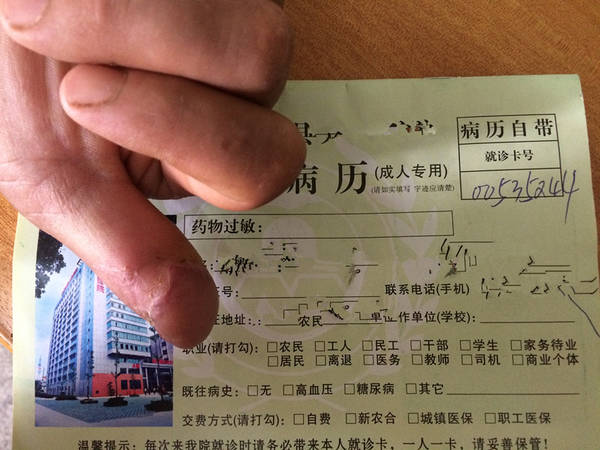 县
病历(成人专用)
(请如实填写 字迹应清楚)
病历自带
就诊卡号
药物过敏:
证号:
联系电话(手机)
地址:
农民
作单位(学校):
职业(请打勾): □农民 □工人 □民工 □干部 □学生 □家务待业
□居民 □离退 □医务 □教师 □司机 □商业个体
既往病史: □无 □高血压 □糖尿病 □其它
交费方式(请打勾): □自费 □新农合 □城镇医保 □职工医保
温馨提示: 每次来我院就诊时请务必带来本人就诊卡,一人一卡,请妥善保管!